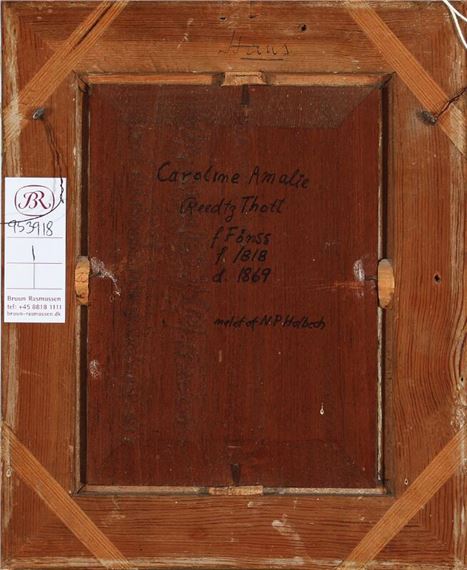 Hans
Caroline Amalie
Reedtz Thott
f Fönss
f. 1818
d. 1869
malet af N.P. Holbech
BR
953918
1
Bruun Rasmussen
tel: +45 8818 1111
bruun-rasmussen.dk